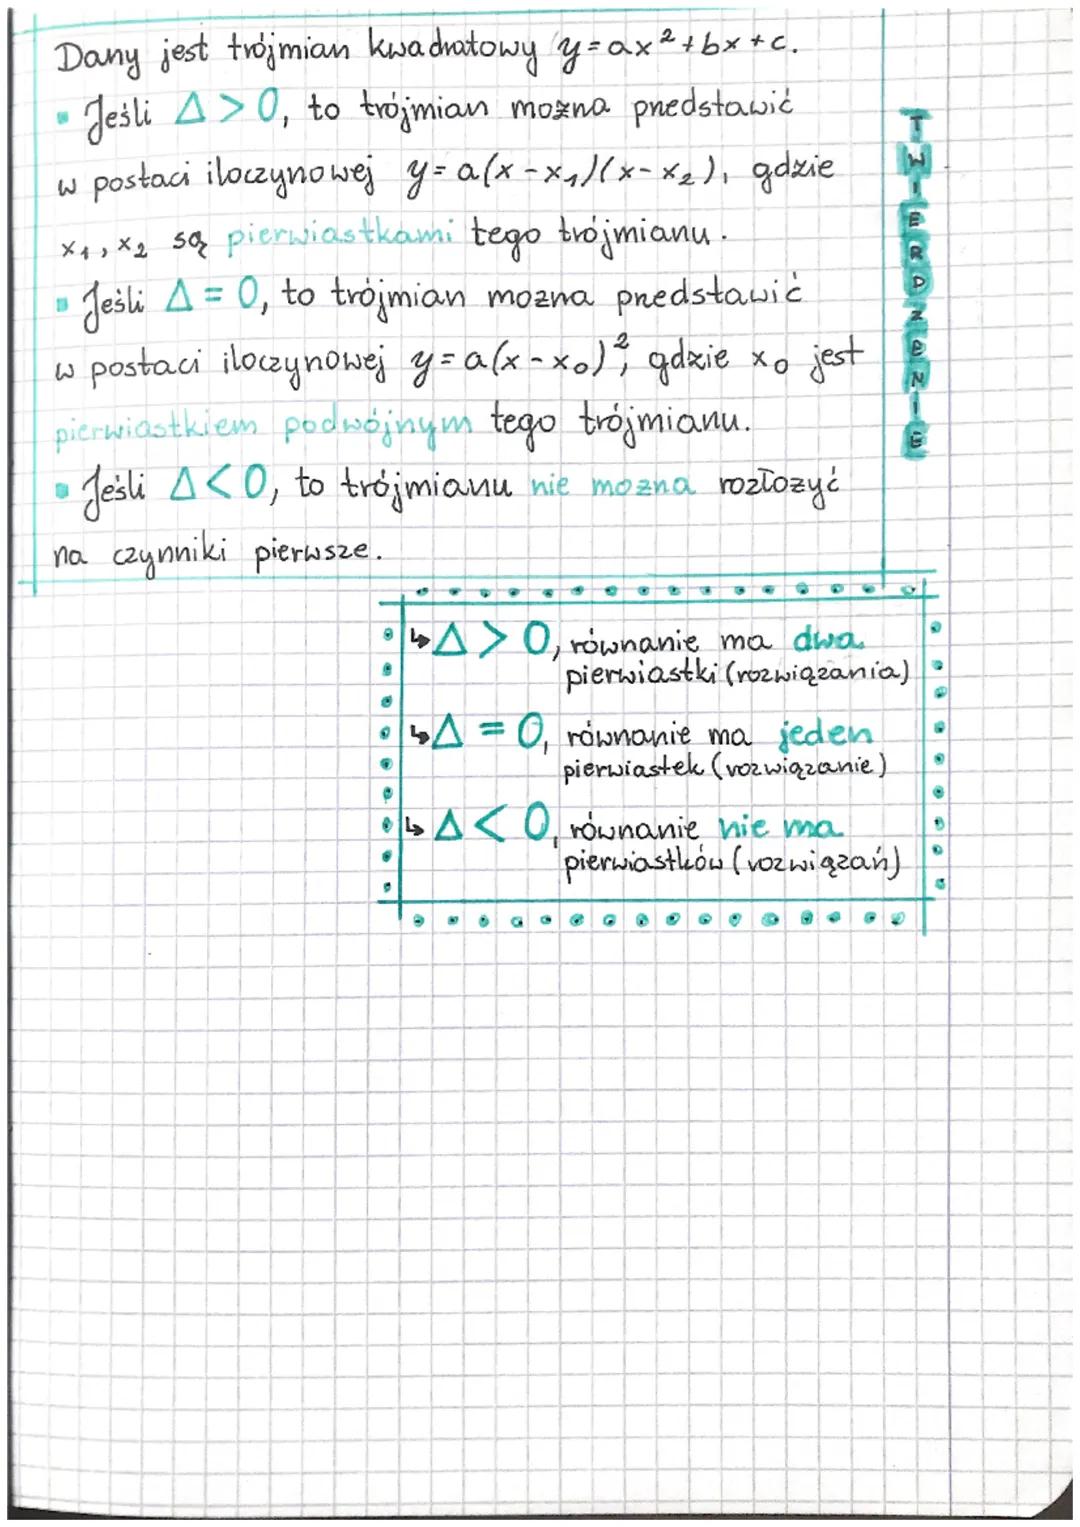 Dany jest trójmian kwadratowy y=ax²+bx+c.
▪ Jeśli Δ>0, to trójmian można przedstawić
w postaci iloczynowej y=a(x-x₁)(x-x₂), gdzie
x₁, x₂ są pierwiastkami tego trójmianu.
▪ Jeśli Δ=0, to trójmian można przedstawić
w postaci iloczynowej y=a(x-x₀)², gdzie x₀ jest
pierwiastkiem podwójnym tego trójmianu.
▪ Jeśli Δ<0, to trójmianu nie można rozłożyć
na czynniki pierwsze.
TWIERDZENIE
↳Δ>0, równanie ma dwa
pierwiastki (rozwiązania)
↳Δ=0, równanie ma jeden
pierwiastek (rozwiązanie)
↳Δ<0, równanie nie ma
pierwiastków (rozwiązań)